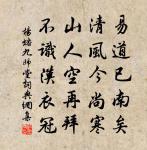 易道已南矣
清風今尚寒
山人空再拜
不識漢衣冠
楊蟠九師堂詞典網集